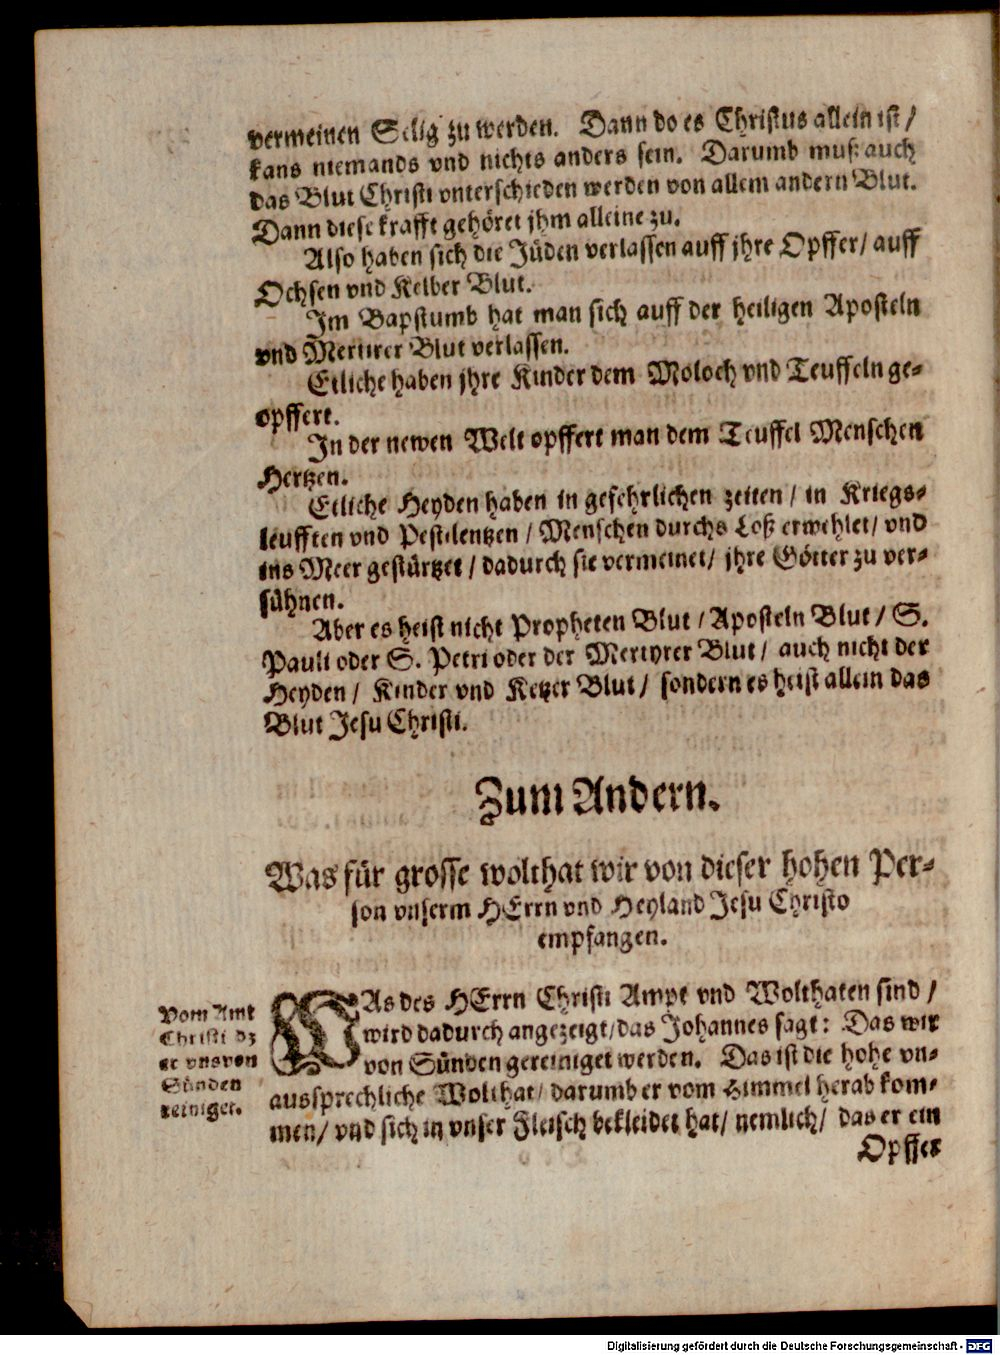 vermeinen Selig zu werden. Dann do es Christus allein ist /
kans niemands vnd nichts anders sein. Darumb muß auch
das Blut Christi vnterschieden werden von allem andern Blut.
Dann diese krafft gehöret jhm alleine zu.
Also haben sich die Jüden verlassen auff jhre Opffer / auff
Ochsen vnd Kelber Blut.
Im Bapstumb hat man sich auff der heiligen Aposteln
vnd Mertirer Blut verlassen.
Etliche haben jhre Kinder dem Moloch vnd Teuffeln ge-
opffert.
In der newen Welt opffert man dem Teuffel Menschen
Hertzen.
Etliche Heyden haben in gefehrlichen zeiten / in Kriegs-
leufften vnd Pestilentzen / Menschen durchs Loß erwehlet / vnd
ins Meer gestürtzet / dadurch sie vermeinet / jhre Götter zu ver-
sühnen.
Aber es heist nicht Propheten Blut / Aposteln Blut / S.
Pauli oder S. Petri oder der Mertyrer Blut / auch nicht der
Heyden / Kinder vnd Ketzer Blut / sondern es heist allein das
Blut Jesu Christi.
Zum Andern.
Was für grosse wolthat wir von dieser hohen Per-
son vnserm HErrn vnd Heyland Jesu Christo
empfangen.
Vom Amt
Christi dz
er vns von
Sünden
reiniget.
WAs des HErrn Christi Ampt vnd Wolthaten sind /
wird dadurch angezeigt / das Johannes sagt: Das wir
von Sünden gereiniget werden. Das ist die hohe vn-
aussprechliche Wolthat / darumb er vom Himmel herab kom-
men / vnd sich in vnser Fleisch bekleidet hat / nemlich / das er ein
Opffer
Digitalisierung gefördert durch die Deutsche Forschungsgemeinschaft - DFG